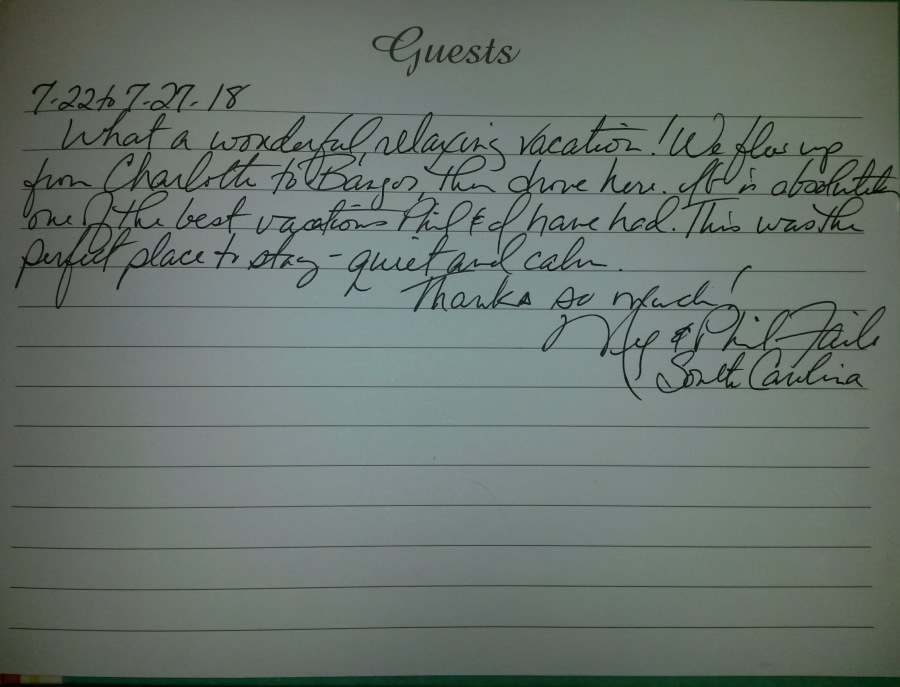 Guests
7-22 to 7-27-18
What a wonderful, relaxing vacation! We flew up
from Charlotte to Bangor, then drove here. It is absolutely
one of the best vacations Phil & I have had. This was the
perfect place to stay - quiet and calm.
Thanks so much!
Meg & Phil
South Carolina